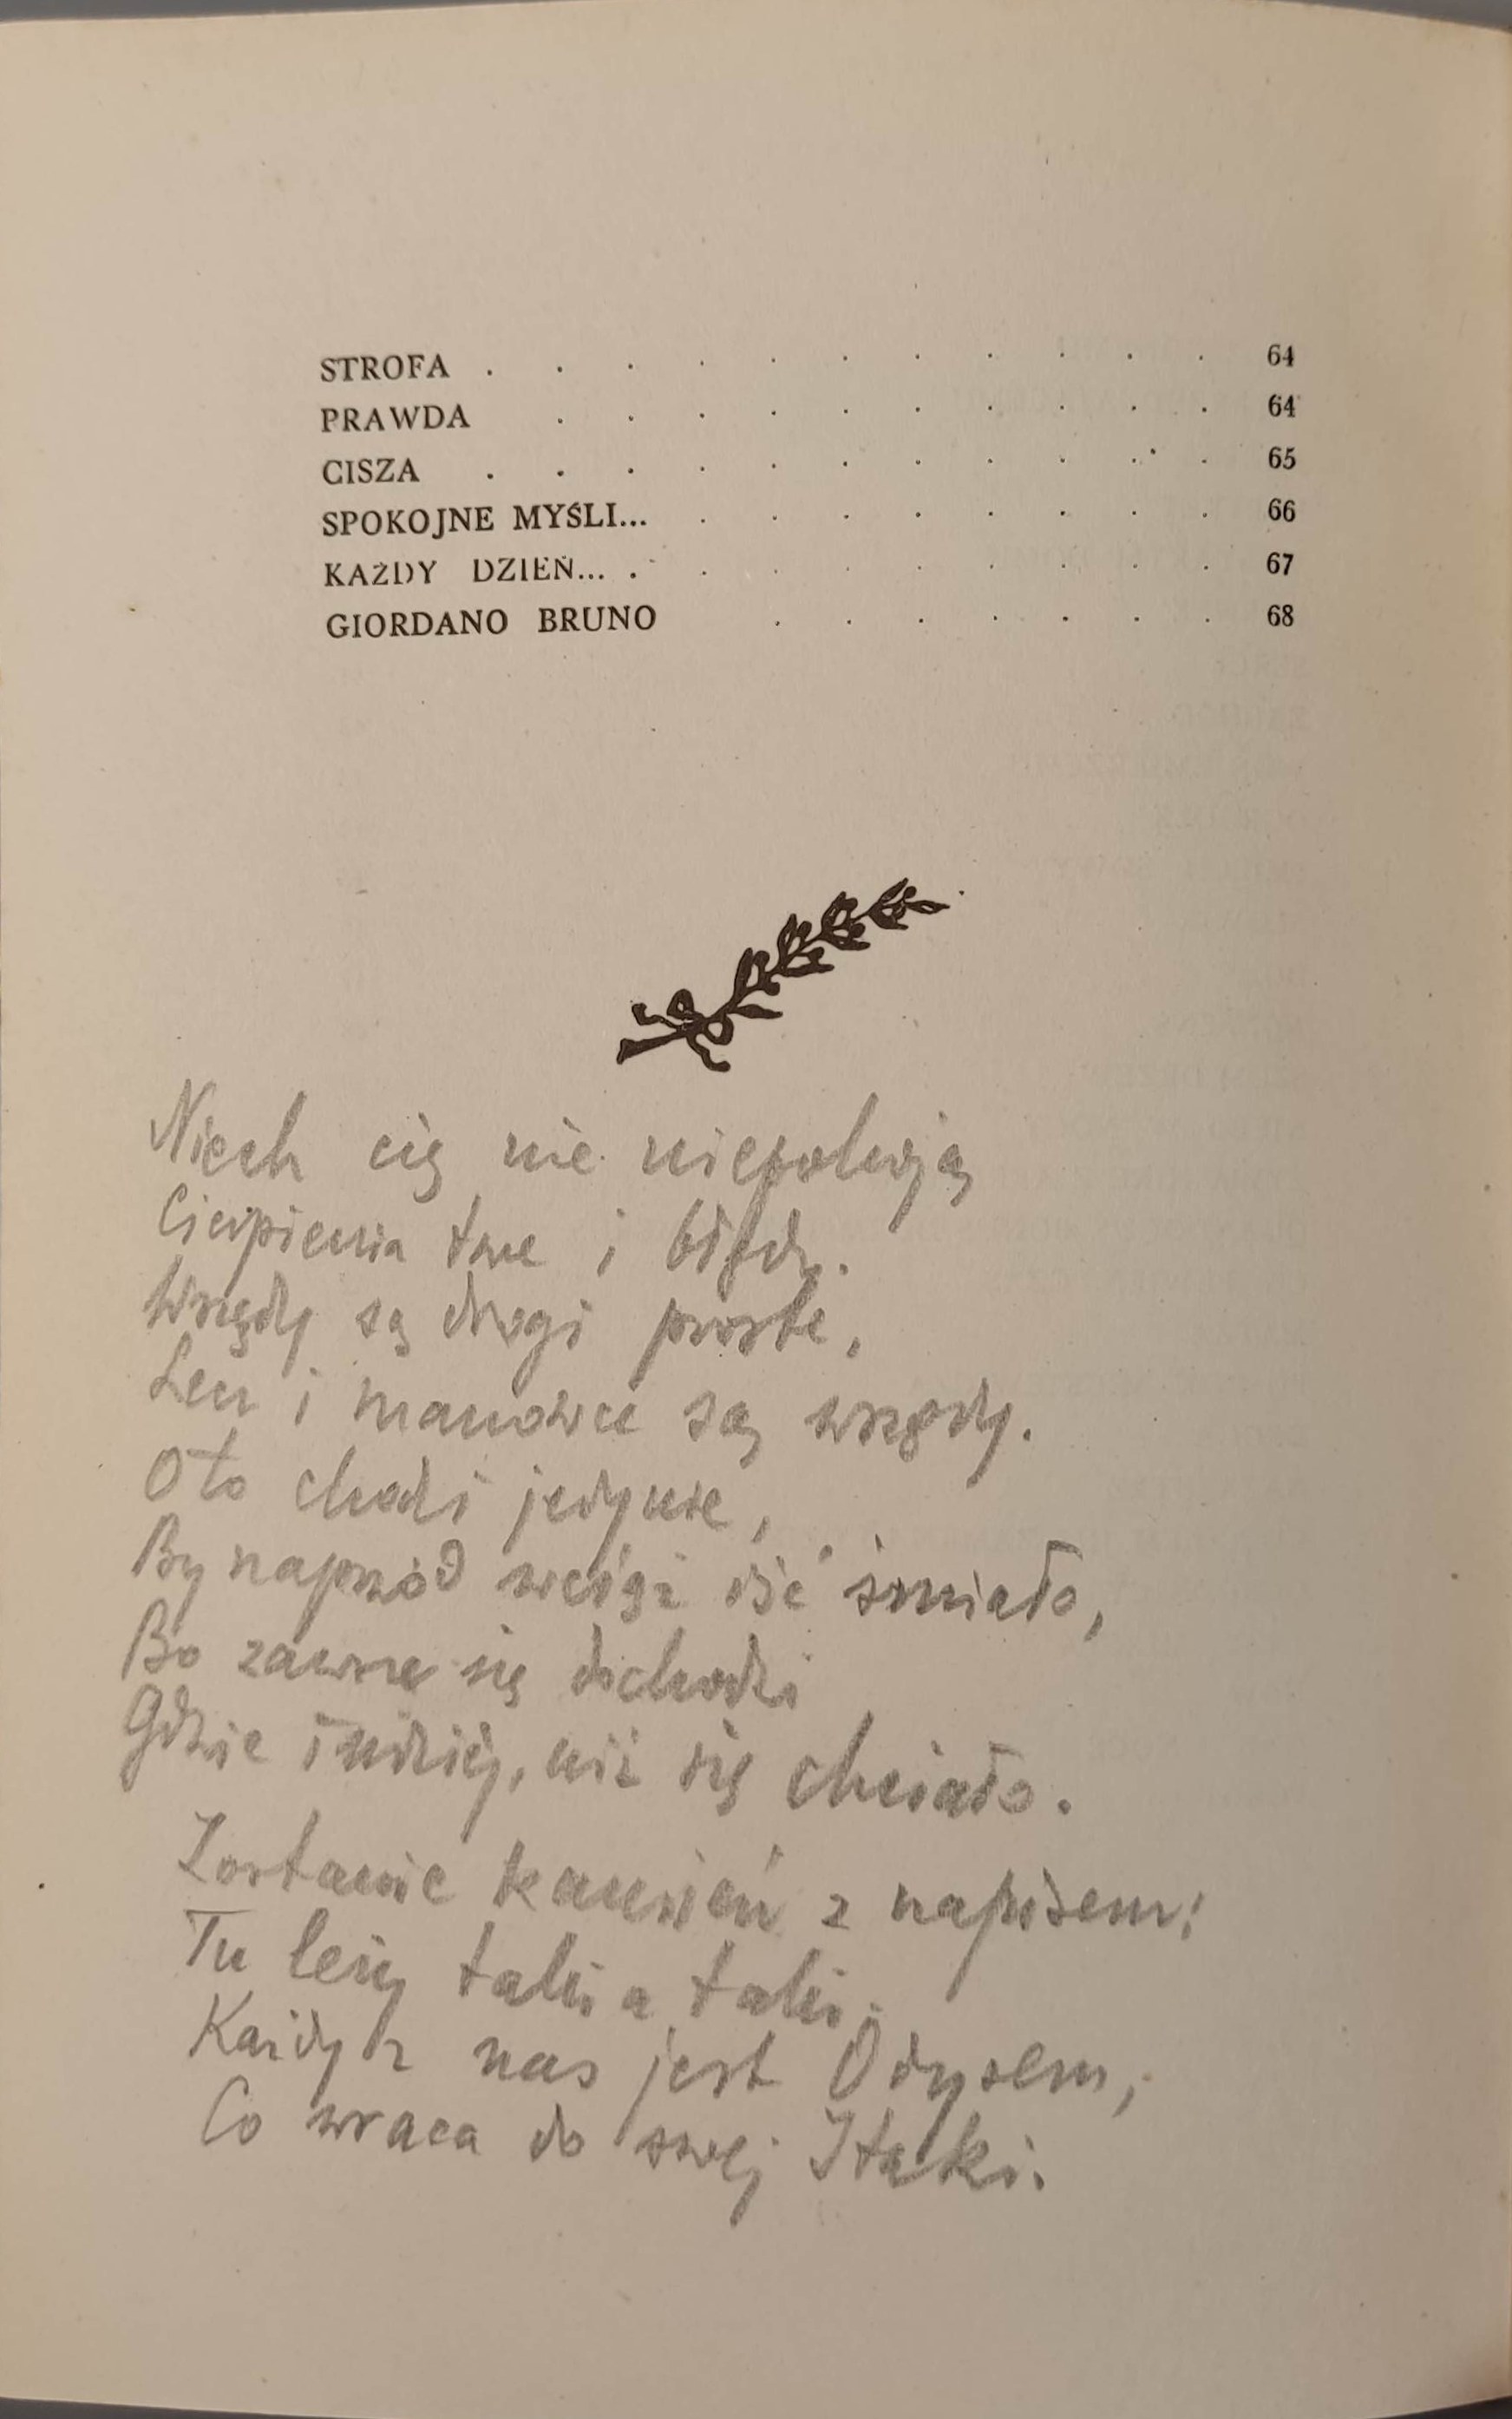 STROFA . . . . . . . . . . . 64
PRAWDA . . . . . . . . . . 64
CISZA . . . . . . . . . . . 65
SPOKOJNE MYŚLI... . . . . . . . . 66
KAŻDY DZIEŃ... . . . . . . . . . 67
GIORDANO BRUNO . . . . . . . 68
Niech cię nie niepokoją
Cierpienia twe i błędy.
Wszędy są drogi proste,
Lecz i manowce są wszędy.
O to chodzi jedynie,
By naprzód wciąż iść śmiało,
Bo zawsze się dochodzi
Gdzie indziej, niż się chciało.
Zostanie kamień z napisem:
Tu leży taki a taki.
Każdy z nas jest Odysem,
Co wraca do swej Itaki.